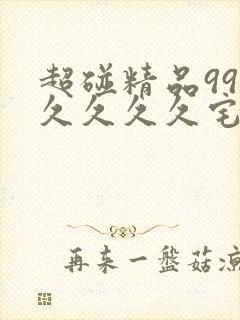 超碰精品99
久久久久宅
再来一盘菇凉